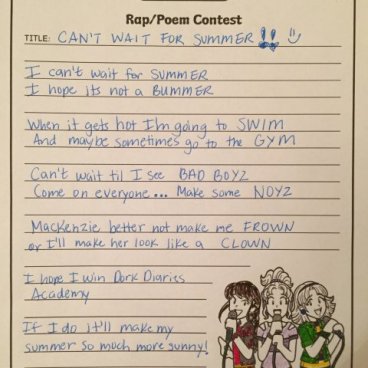 Rap/Poem Contest
TITLE: CAN'T WAIT FOR SUMMER!!
I can't wait for SUMMER
I hope its not a BUMMER
When it gets hot I'm going to SWIM
And maybe sometimes go to the GYM
Can't wait til I see BAD BOYZ
Come on everyone... Make some NOYZ
MacKenzie better not make me FROWN
or I'll make her look like a CLOWN
I hope I win Dork Diaries
Academy
If I do it'll make my
summer so much more sunny!